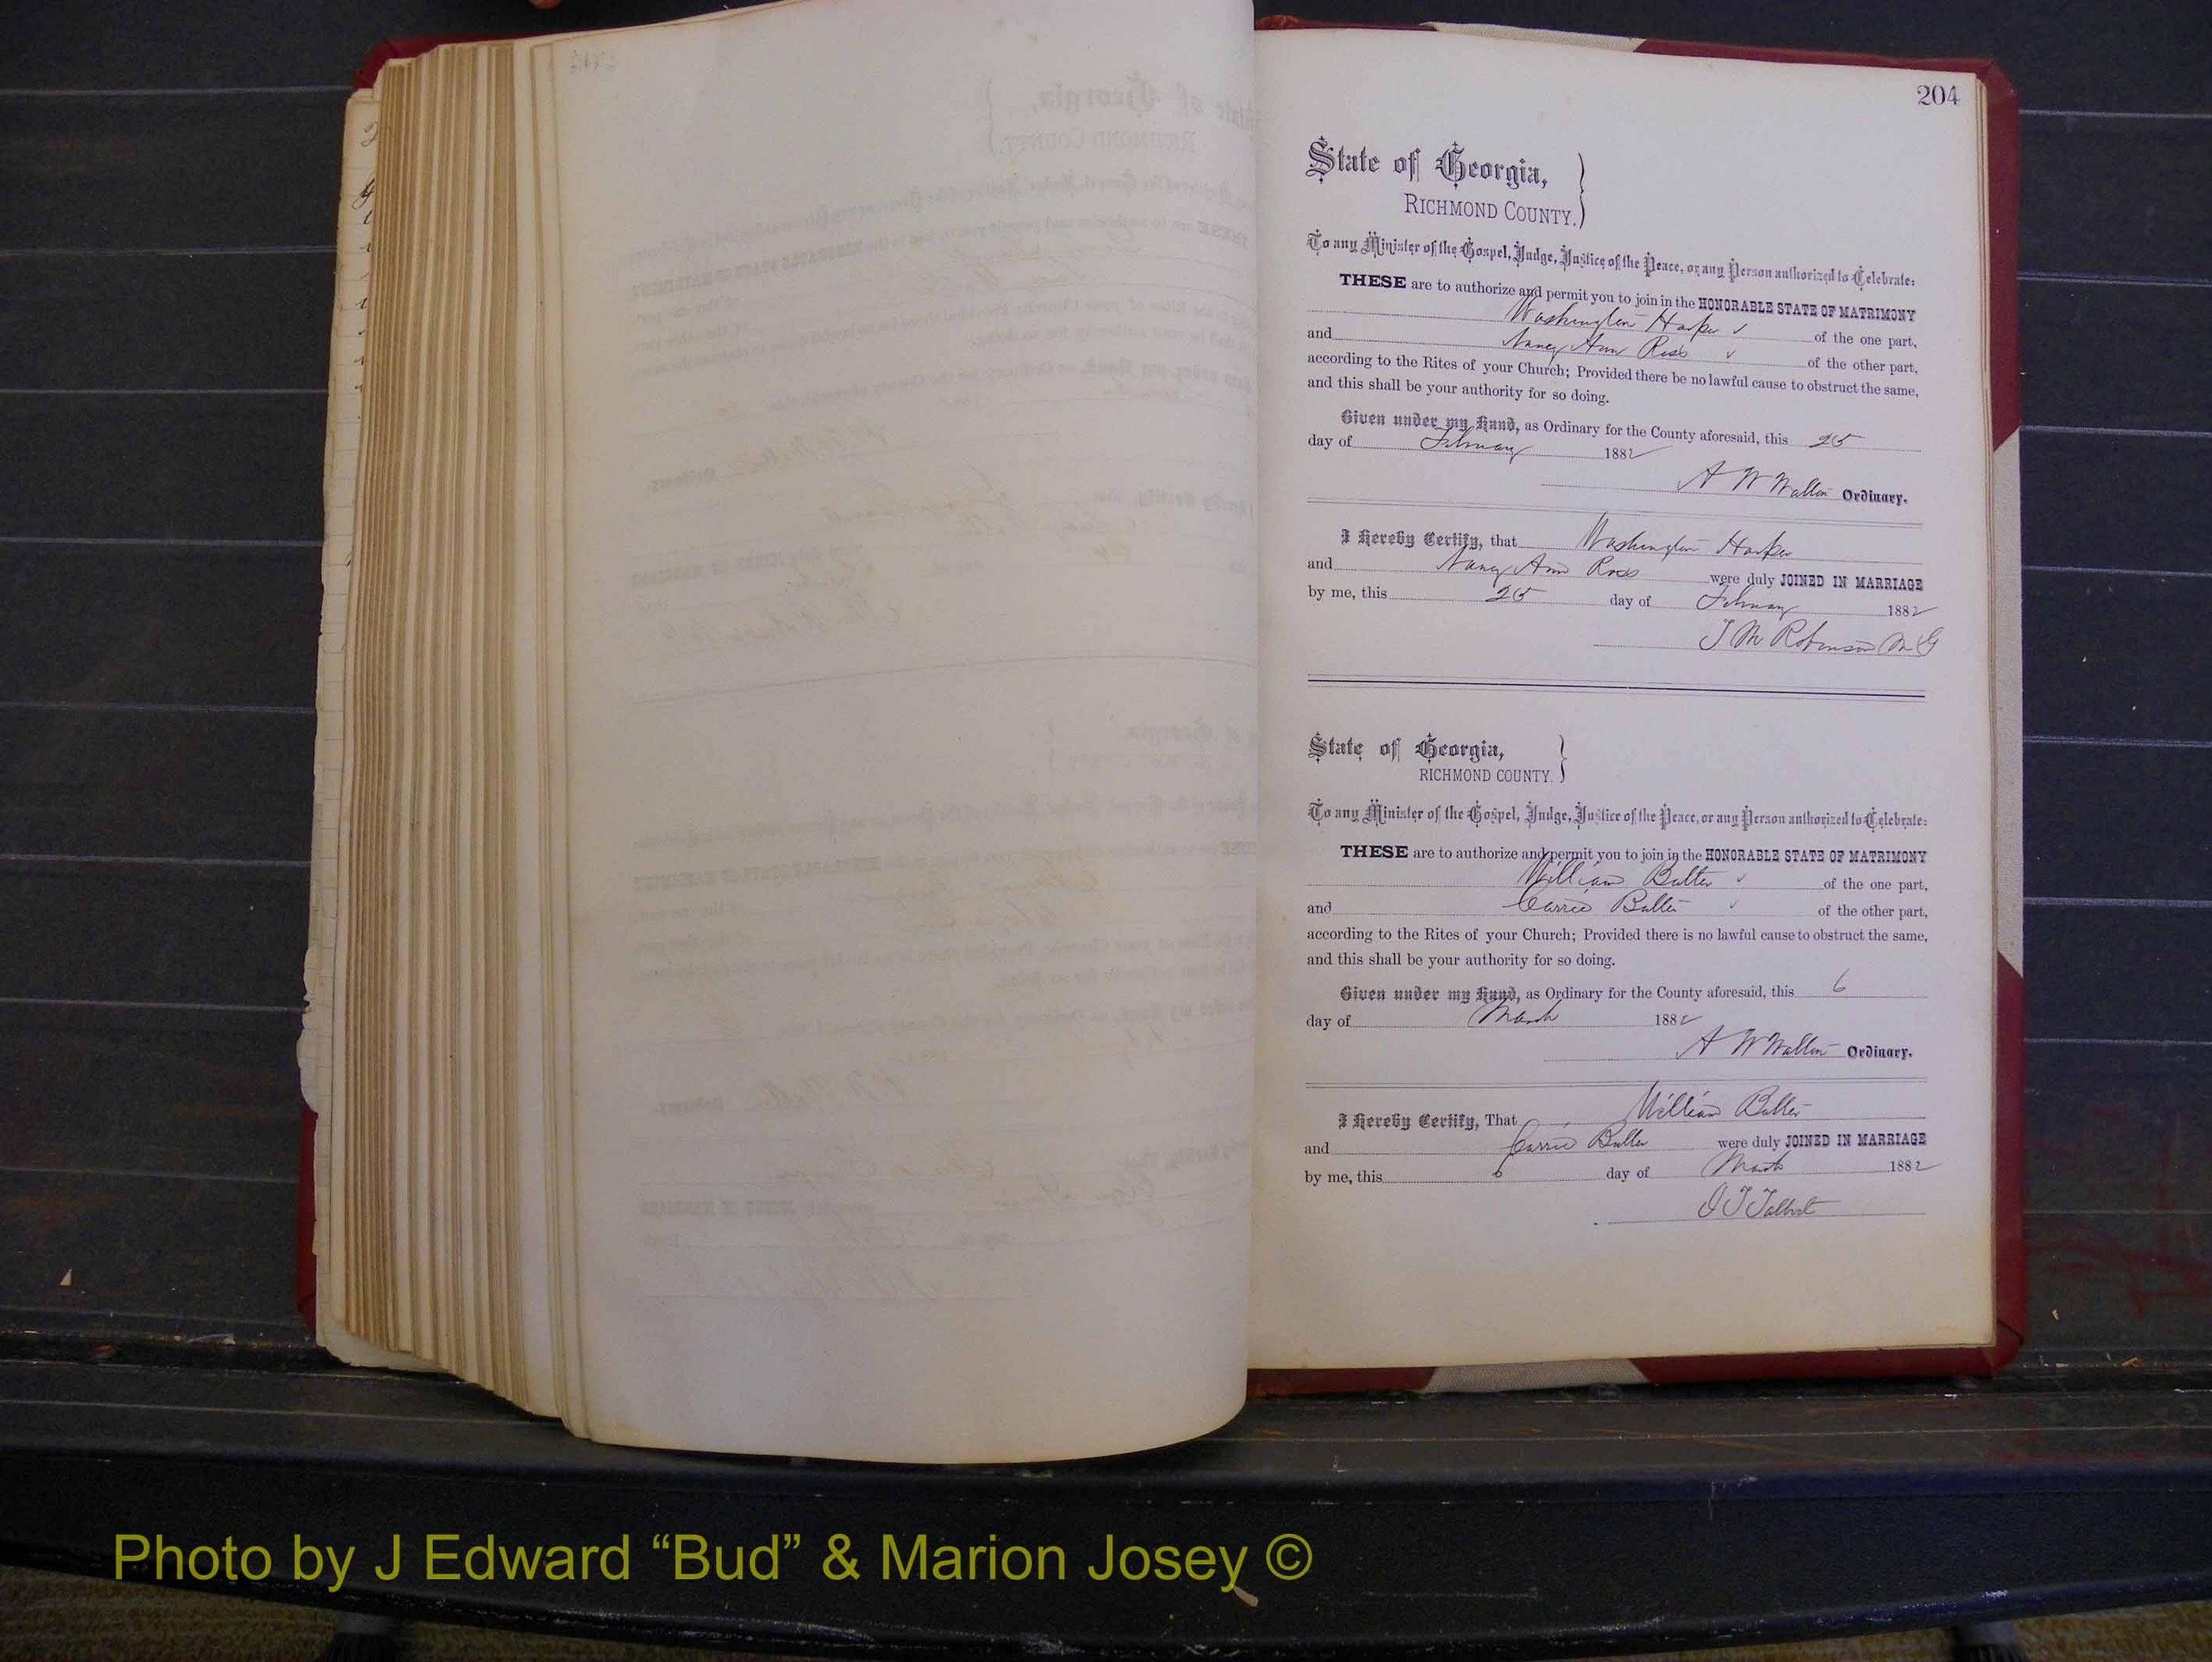 204
State of Georgia, }
RICHMOND COUNTY. }
To any Minister of the Gospel, Judge, Justice of the Peace, or any Person authorized to Celebrate:
THESE are to authorize and permit you to join in the HONORABLE STATE OF MATRIMONY
Washington Harper of the one part,
and Nancy Ann Ross of the other part,
according to the Rites of your Church; Provided there be no lawful cause to obstruct the same,
and this shall be your authority for so doing.
Given under my Hand, as Ordinary for the County aforesaid, this 25
day of February 1882
A W Walton Ordinary.
I Hereby Certify, that Washington Harper
and Nancy Ann Ross were duly JOINED IN MARRIAGE
by me, this 25 day of February 1882
T M Robinson M G
State of Georgia, }
RICHMOND COUNTY. }
To any Minister of the Gospel, Judge, Justice of the Peace, or any Person authorized to Celebrate:
THESE are to authorize and permit you to join in the HONORABLE STATE OF MATRIMONY
William Butler of the one part,
and Carrie Butler of the other part,
according to the Rites of your Church; Provided there is no lawful cause to obstruct the same,
and this shall be your authority for so doing.
Given under my Hand, as Ordinary for the County aforesaid, this 6
day of March 1882
A W Walton Ordinary.
I Hereby Certify, That William Butler
and Carrie Butler were duly JOINED IN MARRIAGE
by me, this 6 day of March 1882
O T Talbert
Photo by J Edward “Bud” & Marion Josey ©